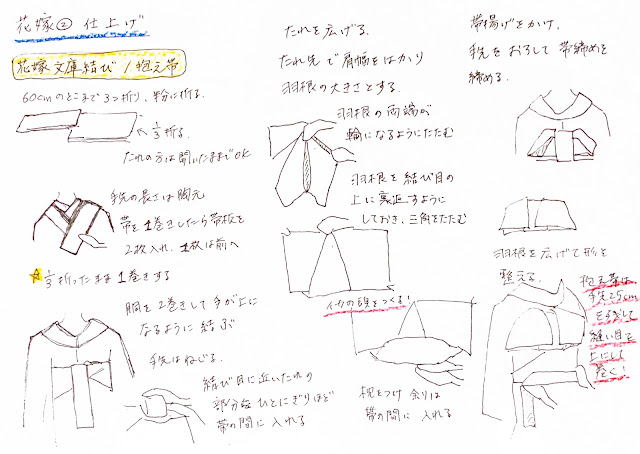 花嫁② 仕上げ
花嫁文庫結び / 抱え帯
60cmのとこまで3つ折り、半分に折る。
1/3折る。
たれの方は開いたままでOK
手先の長さは胸元
帯を1巻きしたら帯板を
2枚入れ、1枚は前へ
☆ 1/3折ったまま1巻きする
胴を2巻きして手が上に
なるように結ぶ
手先はねじる。
結び目に近いたれの
部分を ひとにぎりほど
帯の間に入れる
たれを広げる。
たれ先で肩幅をはかり
羽根の大きさとする。
羽根の両端が
輪になるようにたたむ
羽根を結び目の
上に裏返すように
しておき、三角をたたむ
イカの頭をつくる!
枕をつけ 余りは
帯の間に入れる
帯揚げをかけ、
手先をおろして帯締めを
締める。
羽根を広げて形を
整える。
抱え帯は
手先25cm
縫い目を
上にして
巻く!